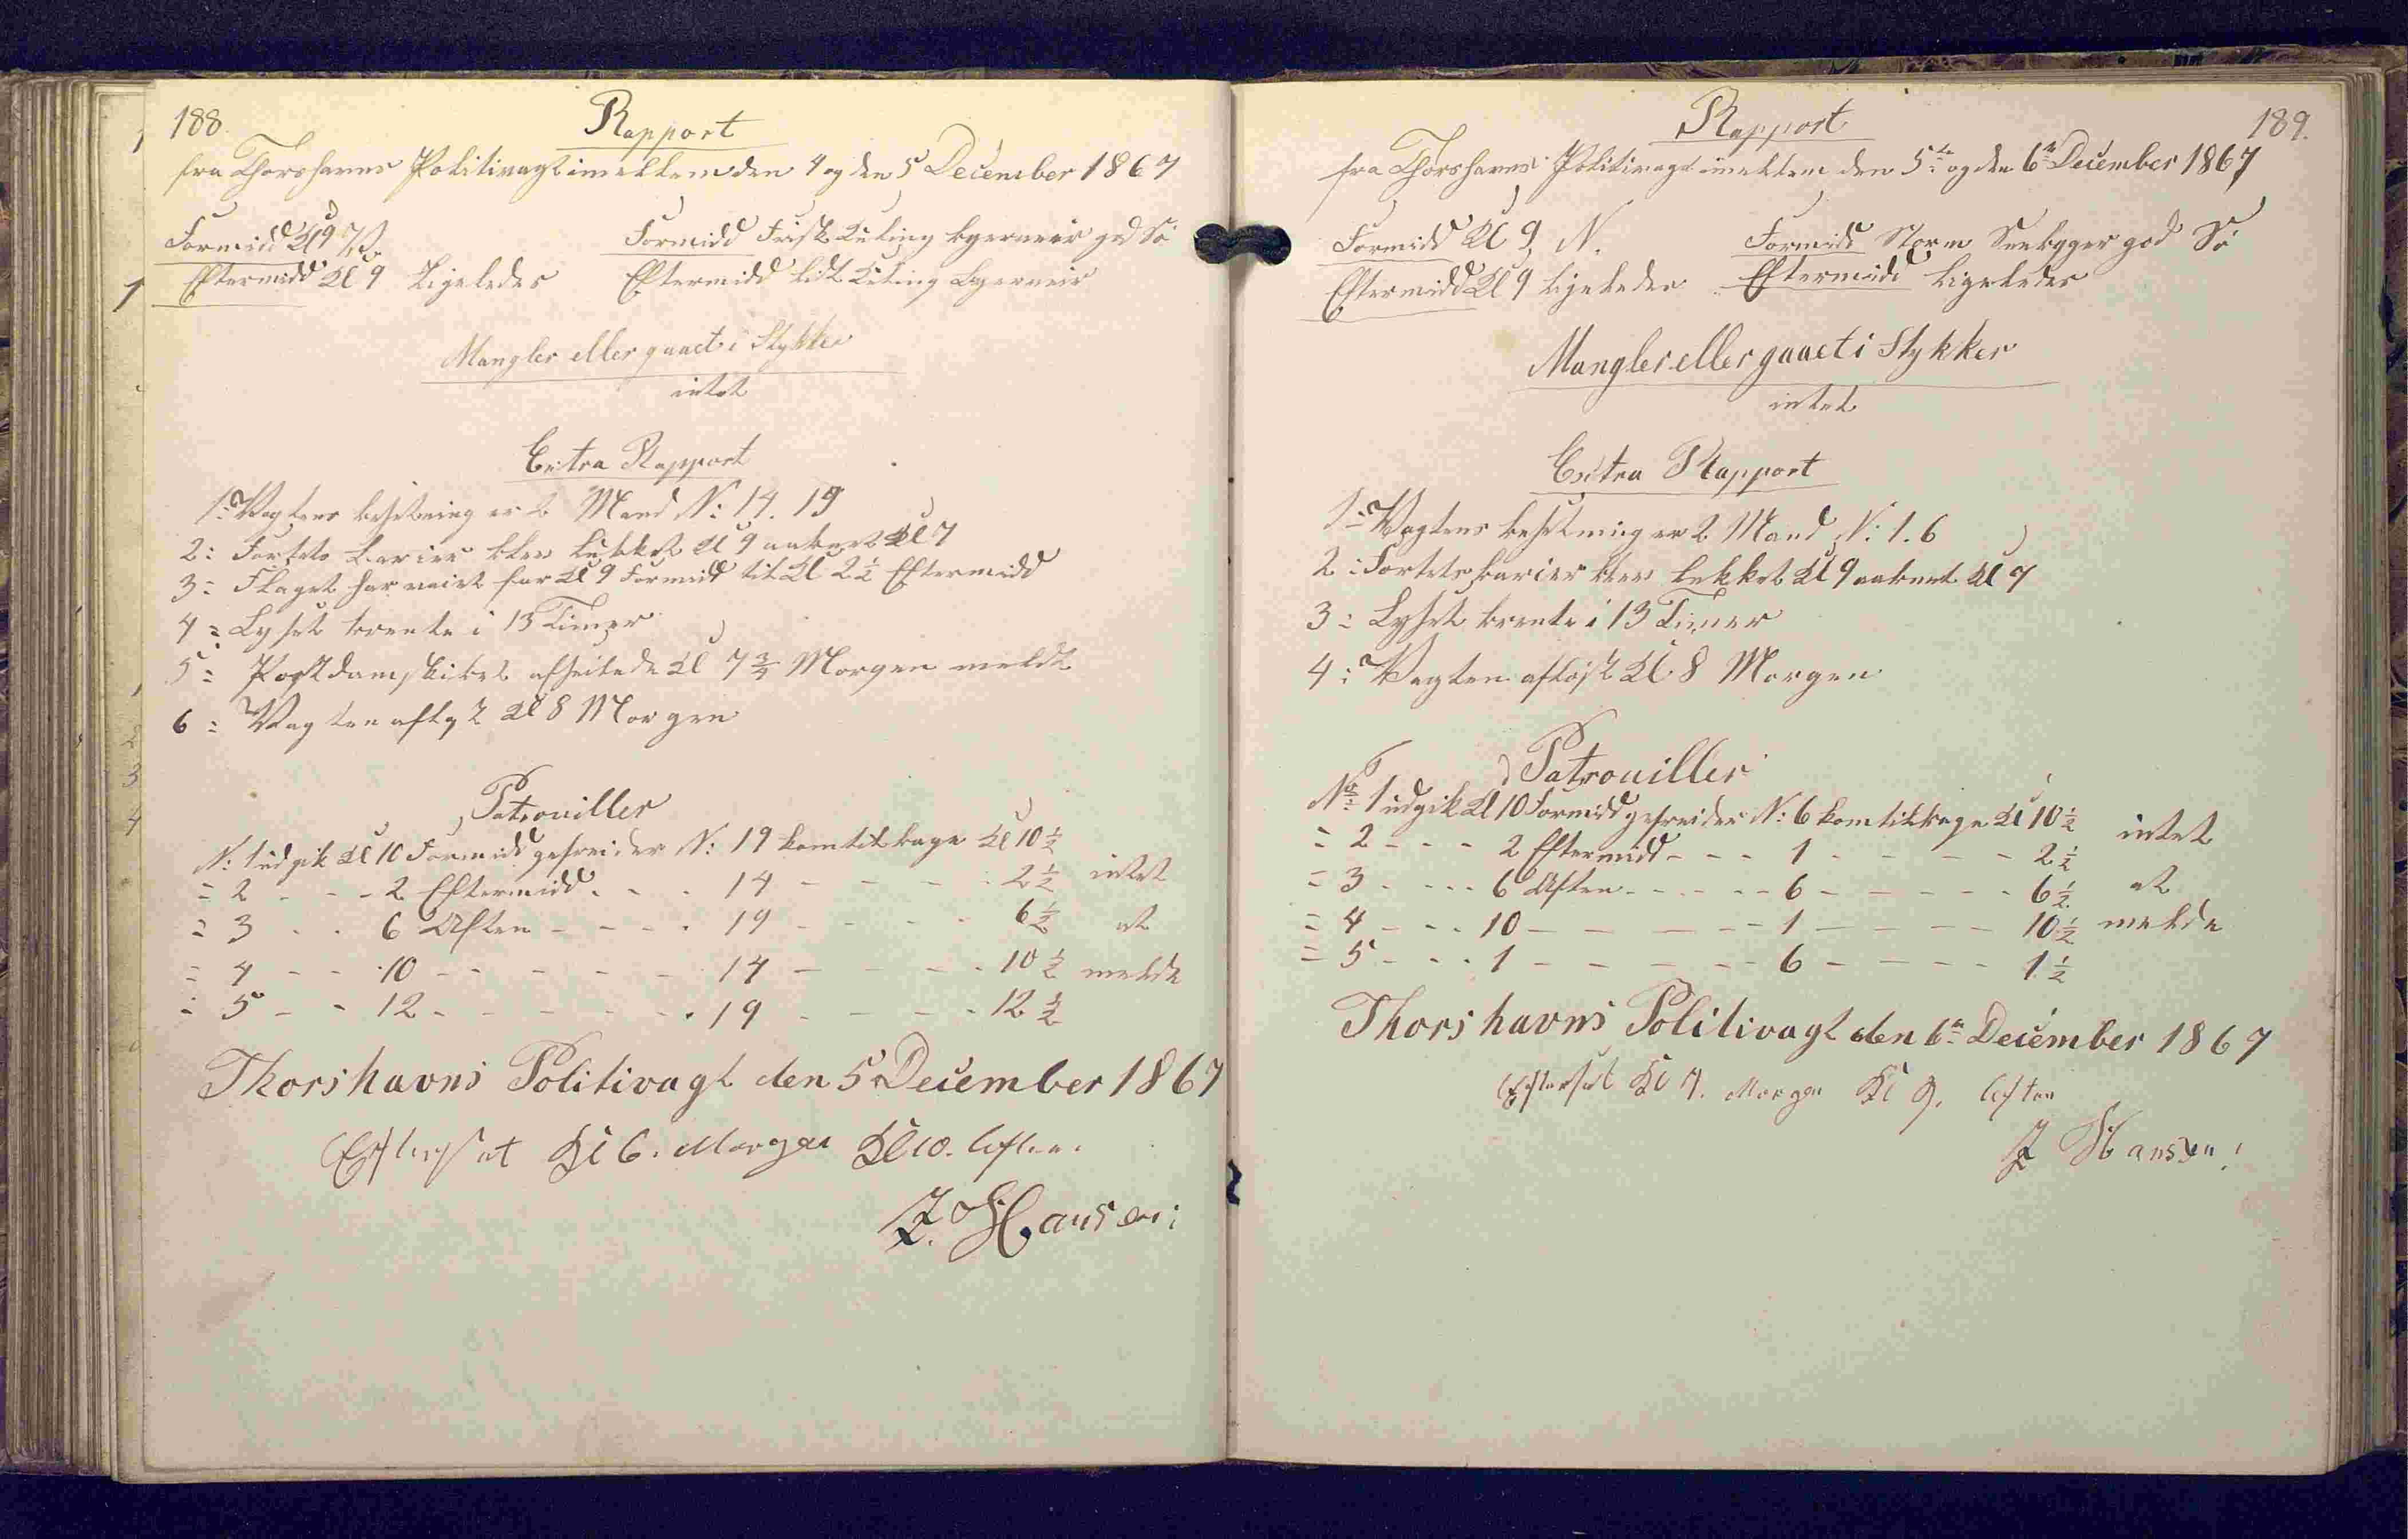 188.
Rapport
fra Thorshavns Politivagt imellem den 4 og den 5 December 1867
Formidd Kl 9
Formidd Frisk Kuling god Sö
Eftermidd Kl 9 Ligeledes
Eftermidd lidt Kuling
Mangler eller gaaet i Stykker
intet
Extra Rapport
1: Vagtens besetning er 2 Mand N: 14. 19
2: Fortets barier blev lukket Kl 9 aabnet Kl 7
3: Flaget har veiet fra Kl 9 Formidd til Kl 2½ Eftermidd
4: Lyset brente i 13 Timer
5: Postdamskibet afseilede Kl 7¾ Morgen meldt
6: Vagten aflöst Kl 8 Morgen
Patrouiller
N: 1 udgik Kl 10 Formidd gefreider N: 19 kom tilbage Kl 10½
= 2 - - - 2 Eftermidd - - - 14 - - - - 2½ intet
= 3 - - 6 Aften - - - - 19 - - - - 6½ at
= 4 - - 10 - - - - - - 14 - - - - 10½ melde
= 5 - - 12 - - - - - - 19 - - - - 12½
Thorshavns Politivagt den 5 December 1867
Efterset Kl 6. Morgen Kl 10. Aften.
J. Hansen
189.
Rapport
fra Thorshavns Politivagt imellem den 5te og den 6te December 1867
Formidd Kl 9, N.
Formidd Storm god Sö
Eftermidd Kl 9 Ligeledes
Eftermidd Ligeledes
Mangler eller gaaet i Stykker
intet
Extra Rapport
1: Vagtens besetning er 2 Mand N: 1. 6
2: Fortets barier blev lukket Kl 9 aabnet Kl 7
3: Lyset brente i 13 Timer
4: Vagten aflöst Kl 8 Morgen
Patrouiller
No 1 udgik Kl 10 Formidd gefreider N: 6 kom tilbage Kl 10½
= 2 - - - 2 Eftermidd - - - 1 - - - - - 2½ intet
= 3 - - - 6 Aften - - - - - 6 - - - - - 6½ at
= 4 - - - 10 - - - - - - 1 - - - - - 10½ melde
= 5 - - - 1 - - - - - - 6 - - - - 1½
Thorshavns Politivagt den 6te December 1867
Efterset Kl 7. Morgen Kl 9. Aften
J Hansen